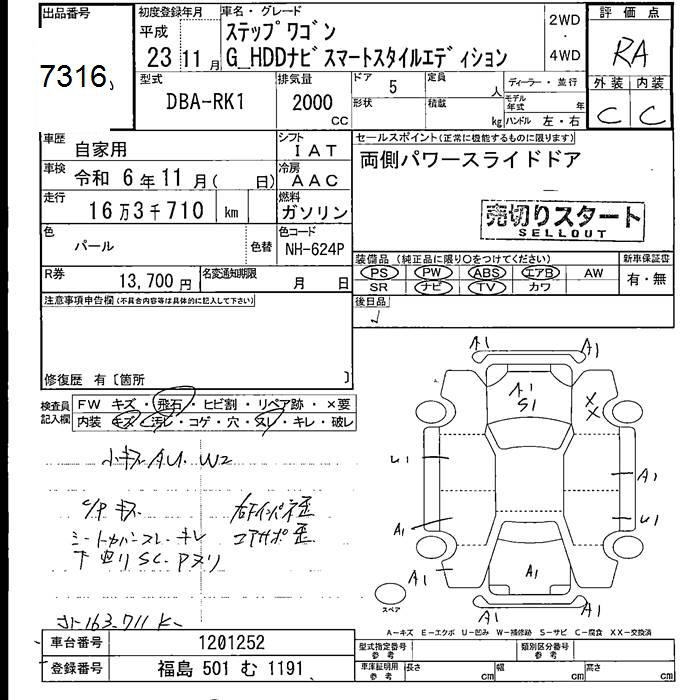 出品番号
7316
初度登録年月
平成
23 11 月
車名・グレード
ステップワゴン
G_HDDナビスマートスタイルエディション
2WD
・
4WD
評価点
RA
外装 内装
C C
型式
DBA-RK1
排気量
2000
CC
ドア 5
定員
人
形状
積載
kg
ディーラー・並行
モデル年式
年
ハンドル 左・右
車歴
自家用
シフト
IAT
車検
令和 6年11月( 日)
冷房
AAC
走行
16万3千710 km
燃料
ガソリン
色
パール
色替
色コード
NH-624P
R券
13,700円
名変通知期限
月 日
セールスポイント(正常に機能するものに限ります)
両側パワースライドドア
売切りスタート
SELLOUT
装備品(純正品に限り○をつけてください)
PS PW ABS エアB AW
SR ナビ TV カワ
新車保証書
有・無
後日品
注意事項申告欄(不具合内容等は具体的に記入して下さい)
修復歴 有〔箇所 〕
検査員
記入欄
FW キズ・飛石・ヒビ割・リペア跡・×要
内装 キズ・汚レ・コゲ・穴・スレ・キレ・破レ
小キズ AU. W2
C/P キズ
シートカバースレ・キレ
下廻りSC・Pヌリ
右Fインパネ歪
コアサポ歪
メーター163,711K
A1 A1
A1
S1
X
X
U1
A1
A1
U1
A1
A1
A1
A1
スペア
A1
A1
A-キズ E-エクボ U-凹み W-補修跡 S-サビ C-腐食 XX-交換済
車台番号
1201252
登録番号
福島 501 む 1191
型式指定番号
参考
類別区分番号
参考
車庫証明用
参考
長さ
cm
幅
cm
高さ
cm